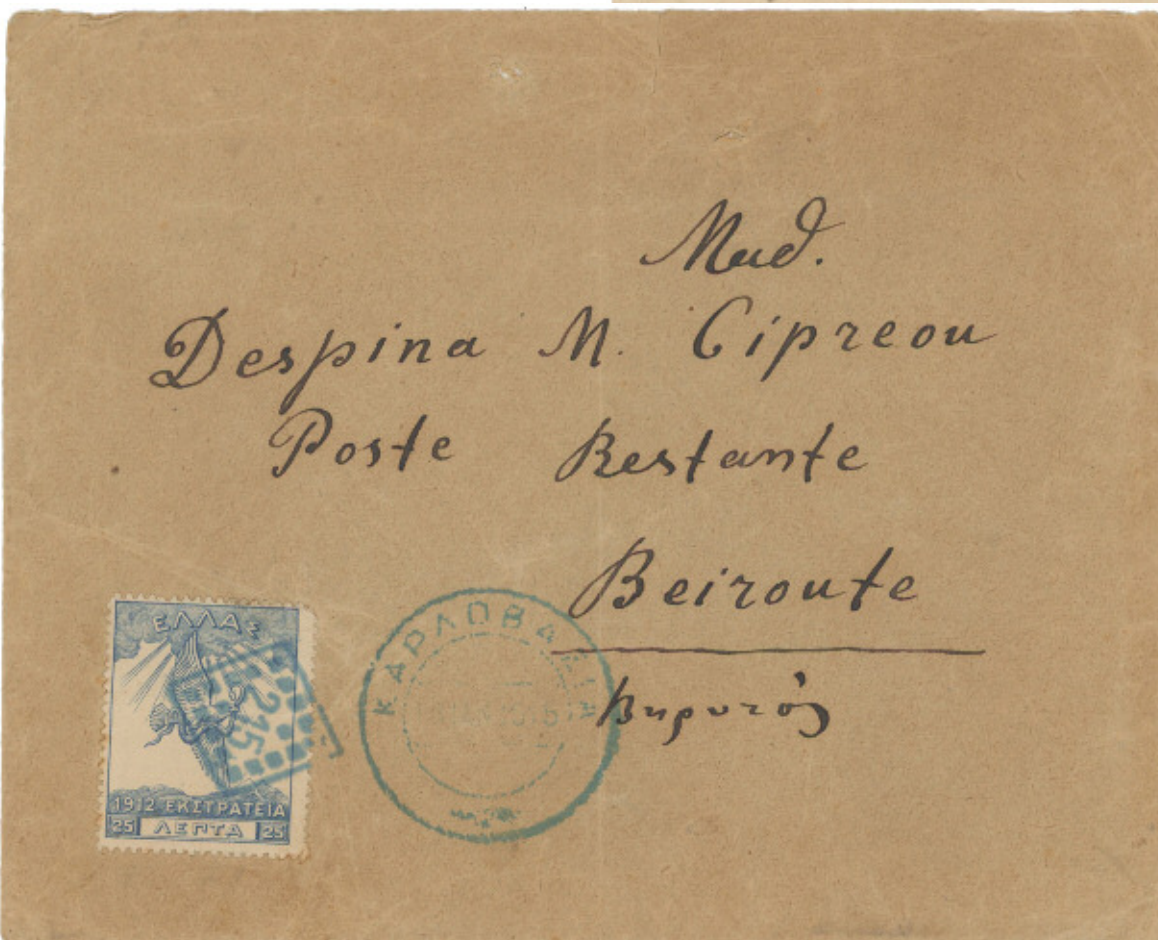 Mad.
Despina M. Cipreou
Poste Restante
Beiroute
Βηρυτός
ΕΛΛΑΣ
215
1912 ΕΚΣΤΡΑΤΕΙΑ
25 ΛΕΠΤΑ 25
ΚΑΡΛΟΒΑΣΙ